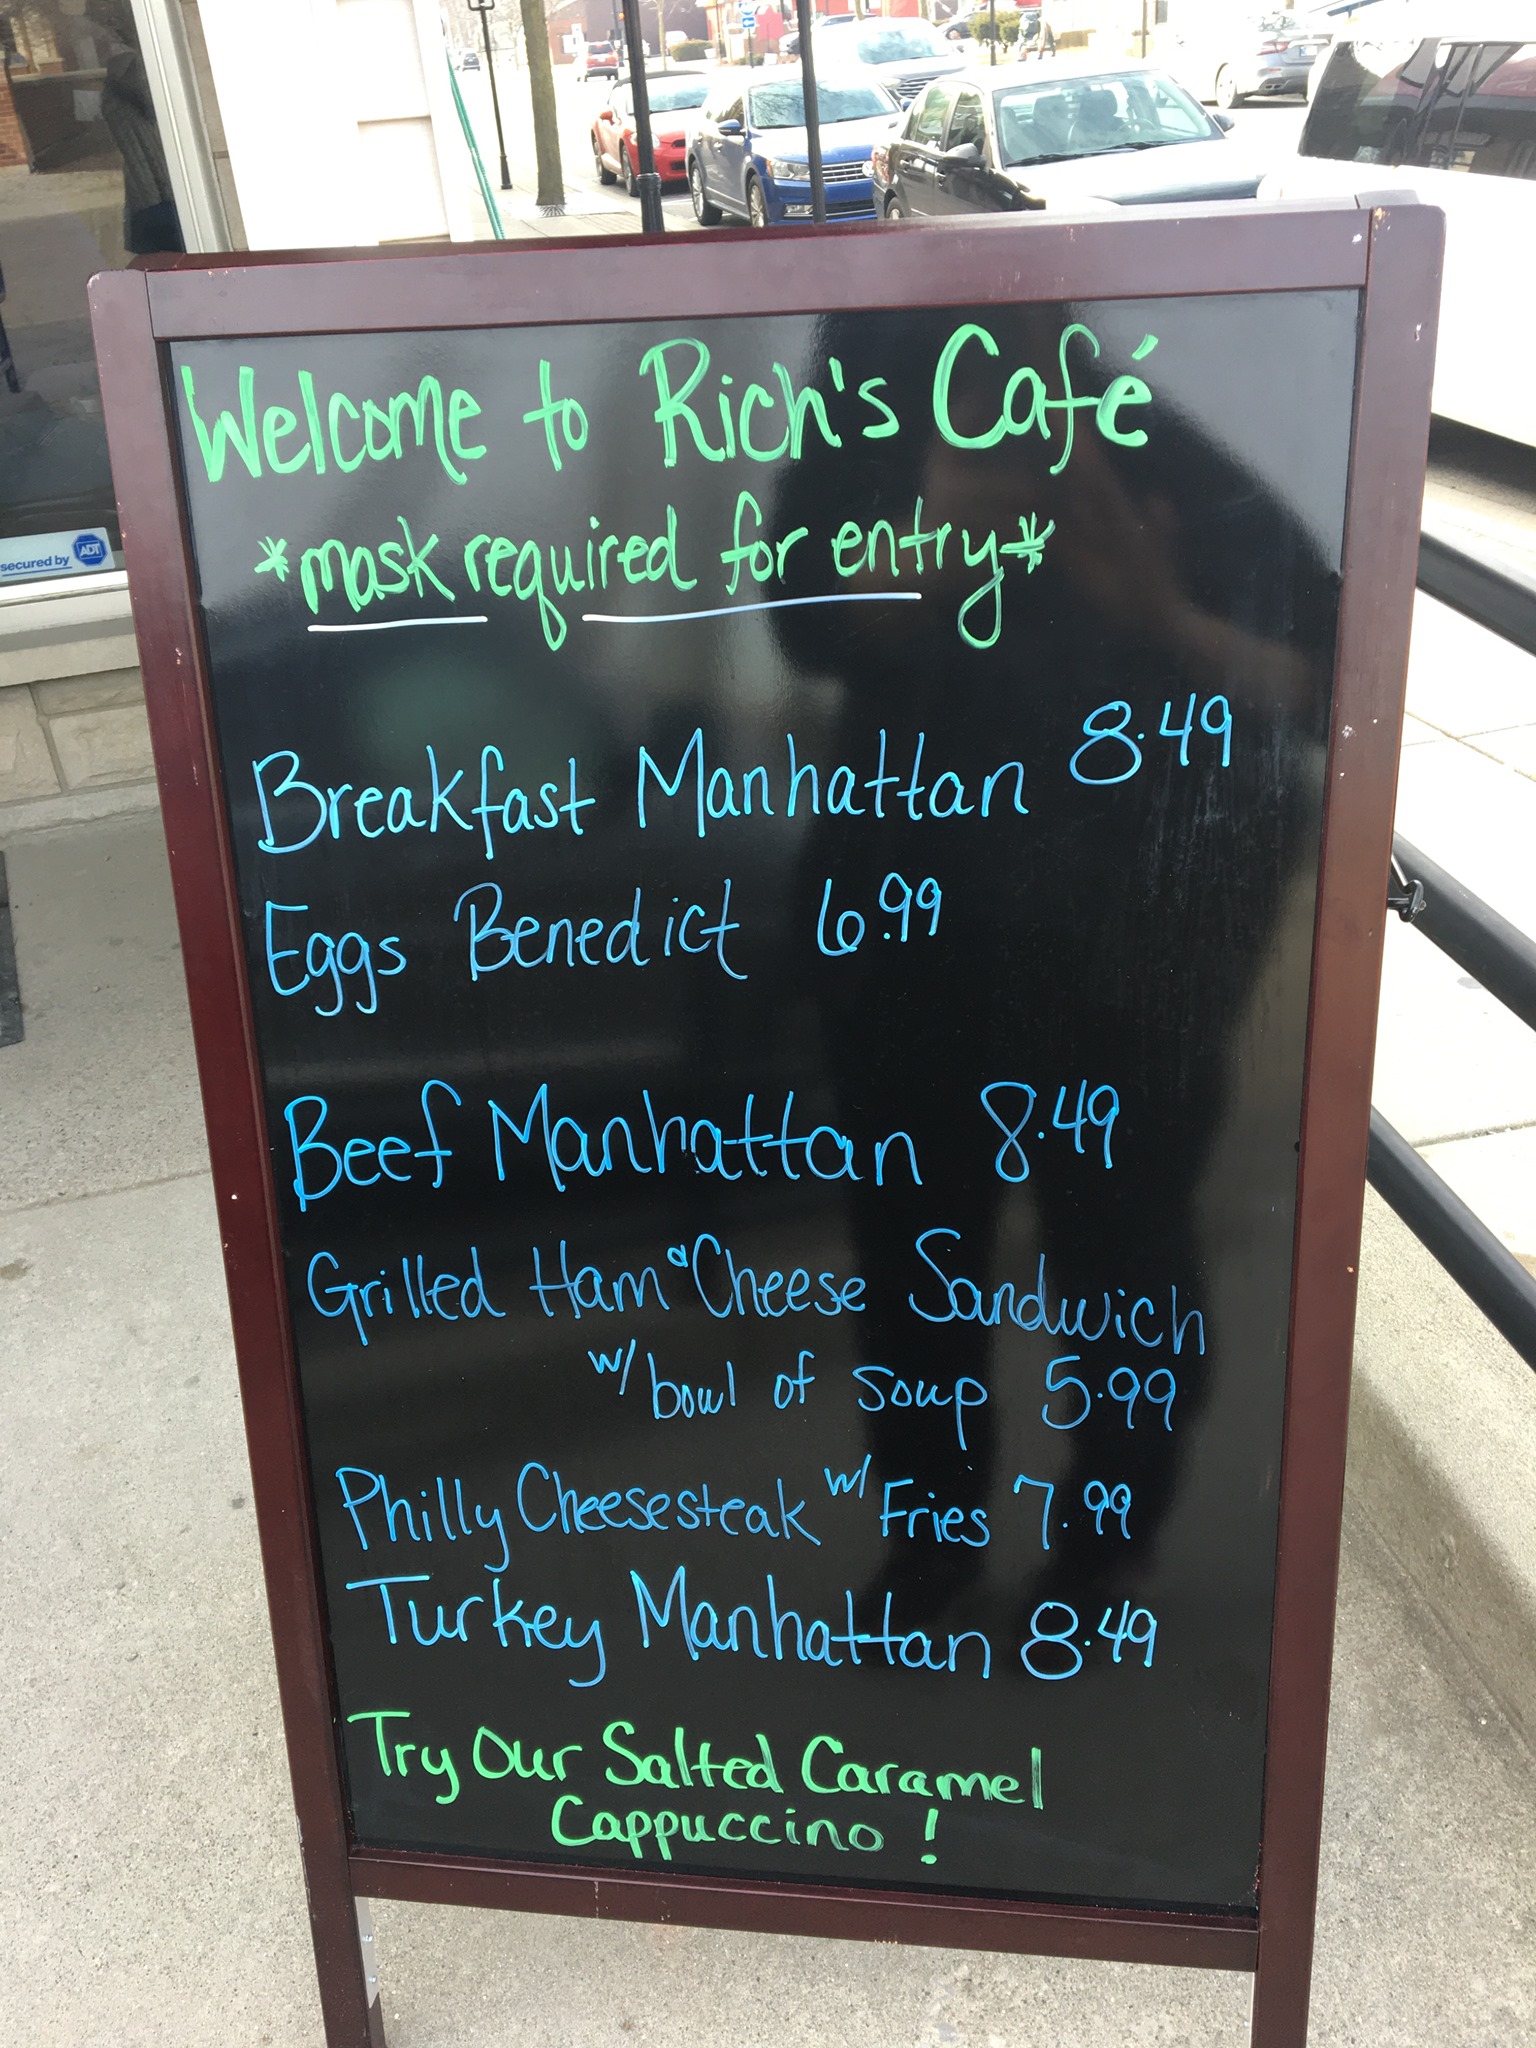 Welcome to Rich's Café
*mask required for entry*
Breakfast Manhattan 8.49
Eggs Benedict 6.99
Beef Manhattan 8.49
Grilled Ham & Cheese Sandwich
w/ bowl of soup 5.99
Philly Cheesesteak w/ Fries 7.99
Turkey Manhattan 8.49
Try Our Salted Caramel
Cappuccino!
secured by ADT